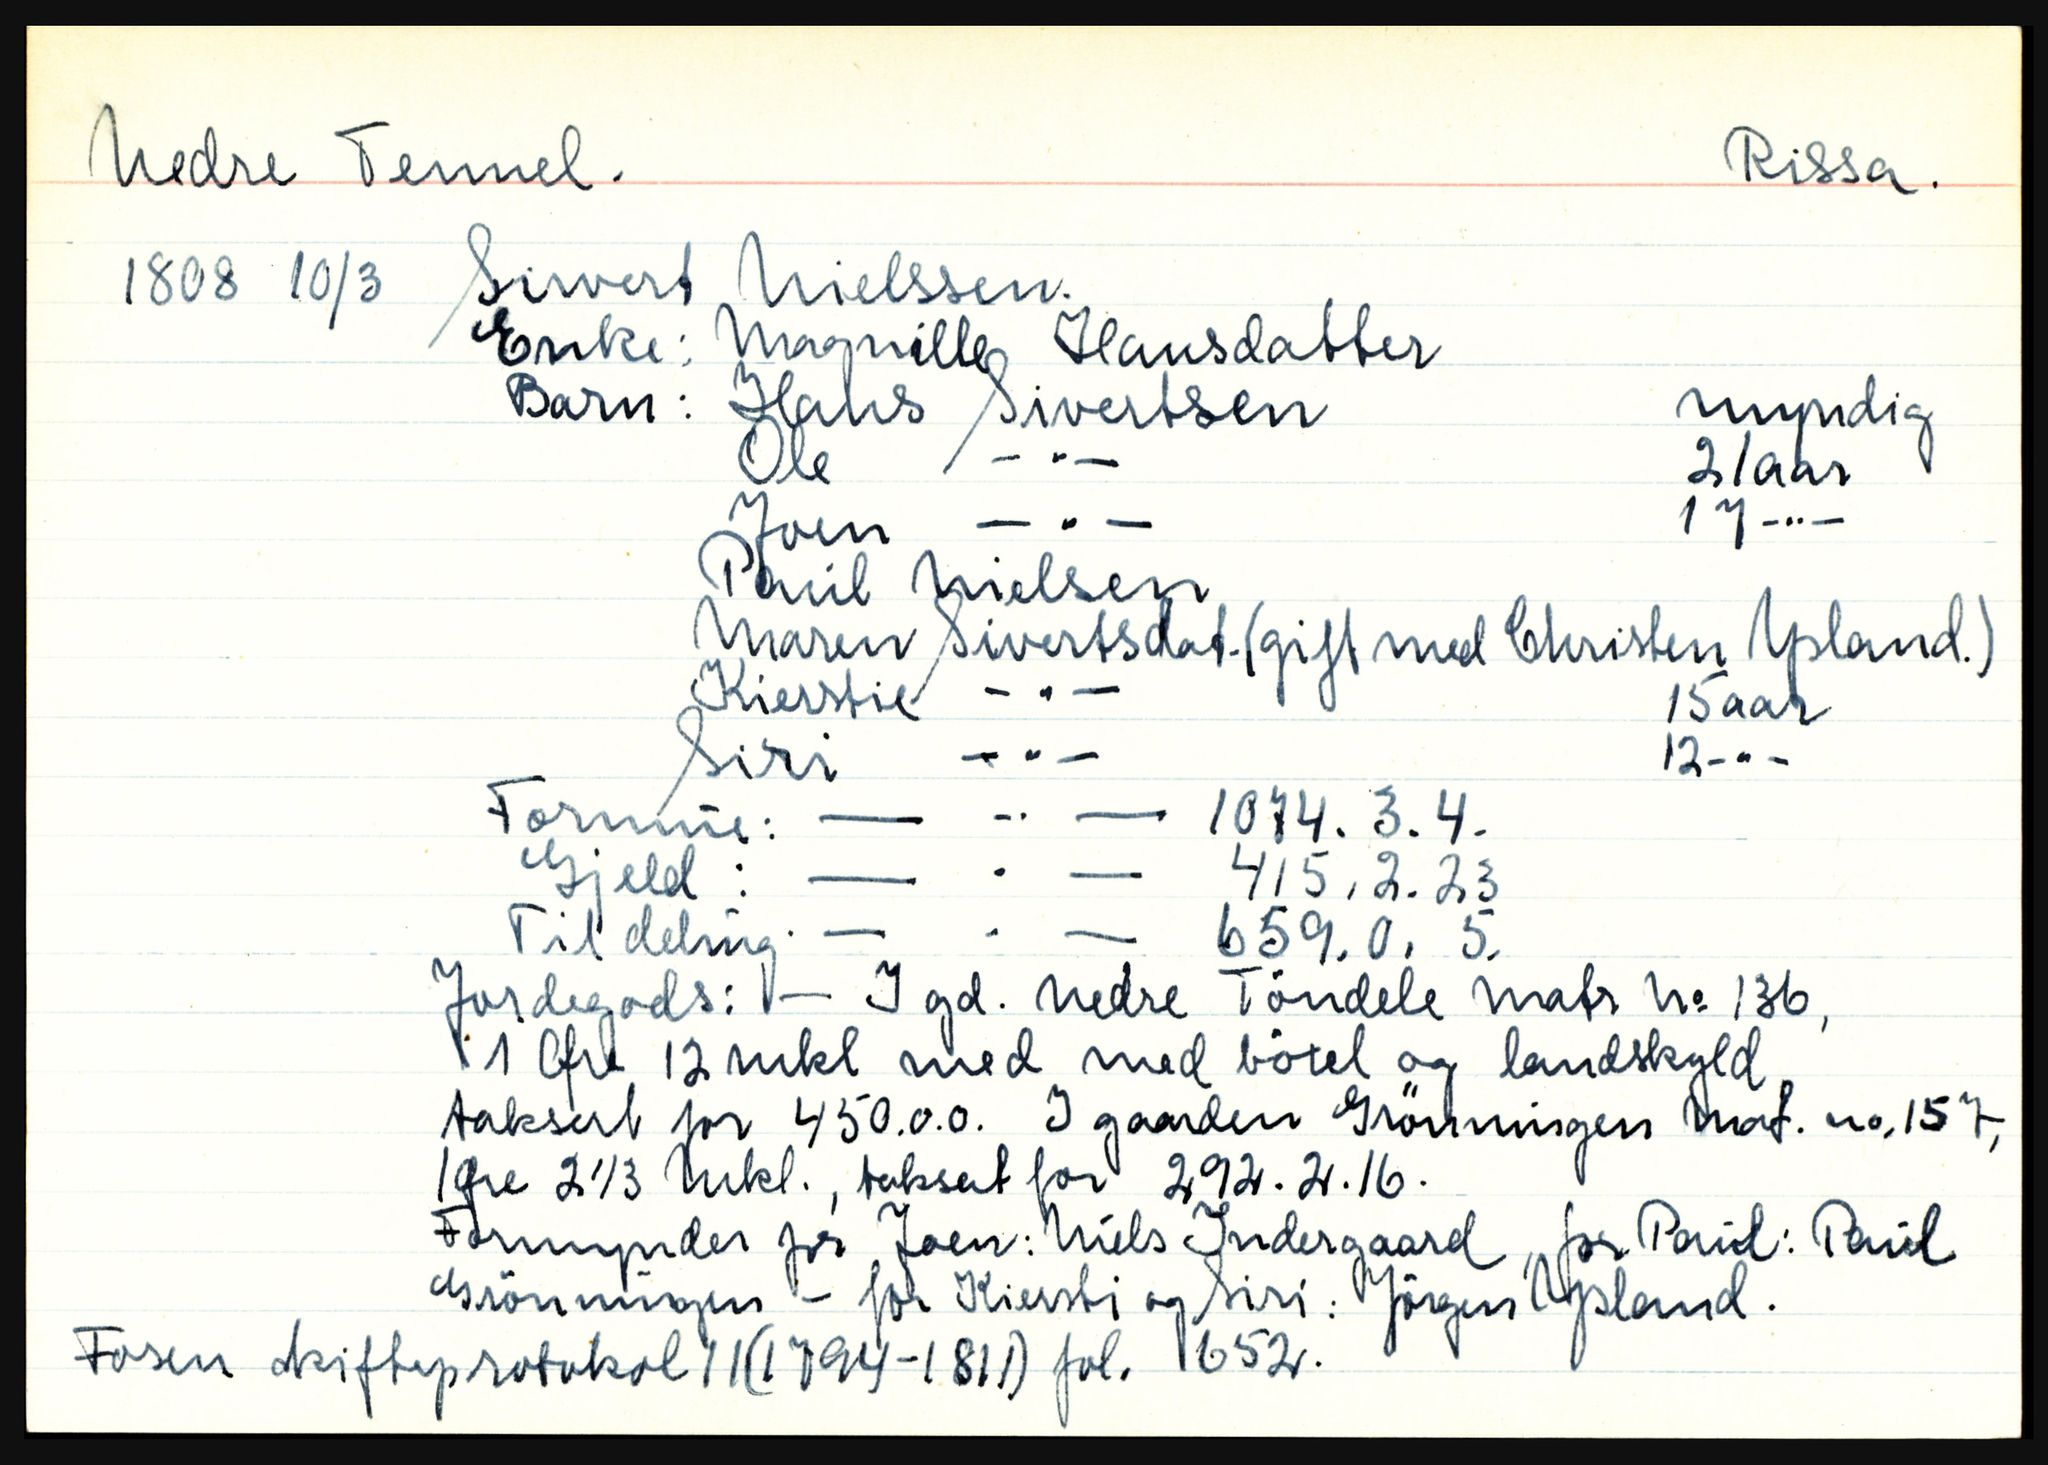 Nedre Tennel. Rissa.
1808 10/3 Sivert Nielssen.
Enke: Magnille Hansdatter
Barn: Hans Sivertsen myndig
Ole - " - 21 aar
Joen - " - 17 - " -
Paul Nielsen
Maren Sivertsdat. (gift med Christen Ysland.)
Kierstie - " - 15 aar
Siri - " - 12 - " -
Formue: — " — 1074. 3. 4.
Gjeld: — " — 415. 2. 23
Til deling. — " — 659. 0. 5.
Jordegods: — I gd. nedre Töndele matr No 136,
1 Øre 12 mkl med med böxel og landskyld
taksert for 450.0.0. I gaarden Grönningen Mat. no. 157,
1 øre 2 1/3 Mkl., taksert for 292. 2. 16.
Formynder for Joen: Niels Indergaard, for Paul: Paul
Grönningen - for Kiersti og Siri: Jörgen Ysland.
Fosen skifteprotokol 11 (1794-1811) fol. 652.